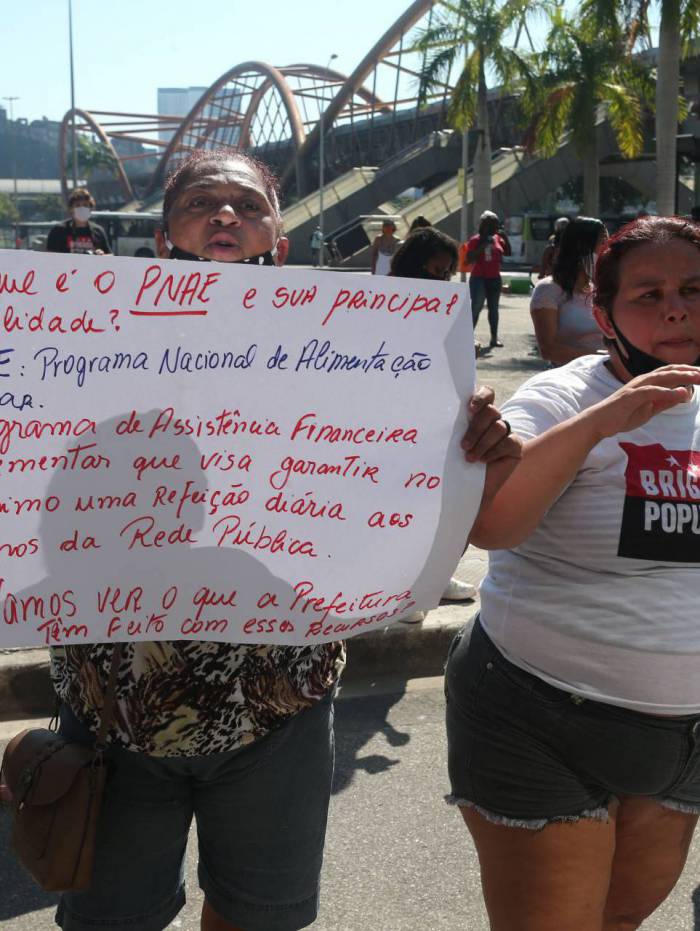 que é o PNAE e sua principal
lidade?
E: Programa Nacional de Alimentação
ar.
grama de Assistência Financeira
ementar que visa garantir no
nimo uma refeição diária aos
nos da Rede Pública.
Vamos ver o que a Prefeitura
Têm feito com esses recursos?
BRIG
POPU